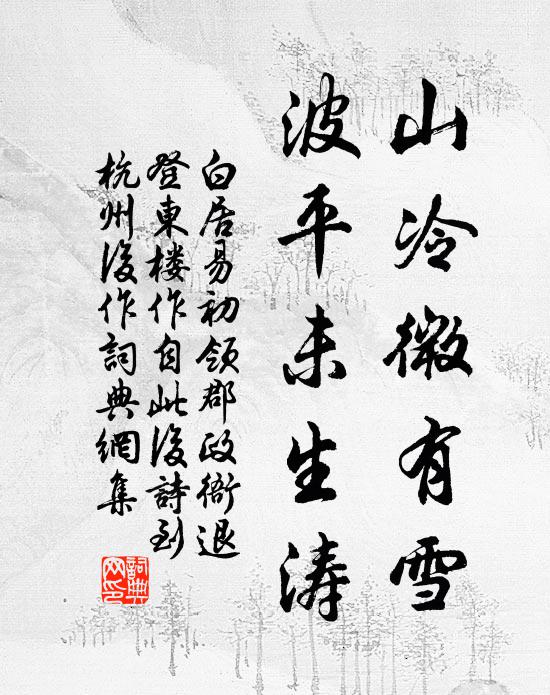 山冷微有雪
波平未生涛
白居易初领郡政衙退
登東楼作自此後詩到
杭州後作詞典網集
詞典网印